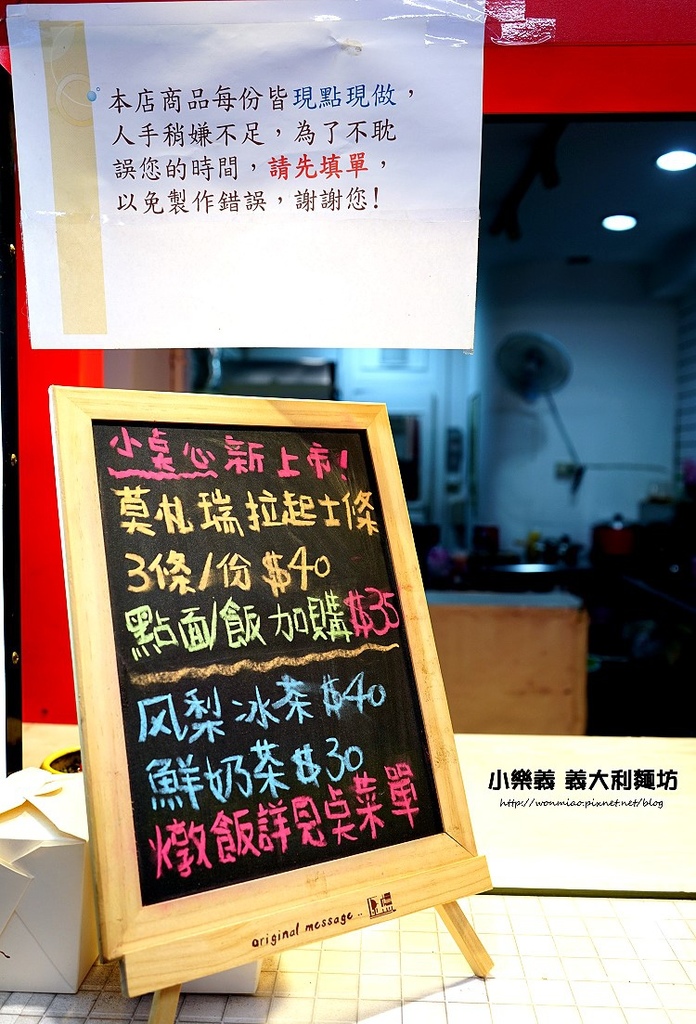 本店商品每份皆現點現做，
人手稍嫌不足，為了不耽
誤您的時間，請先填單，
以免製作錯誤，謝謝您！
小桌心新上市！
莫札瑞拉起士條
3條/份 $40
點面/飯加購$35
风梨冰茶 $40
鮮奶茶 $30
燉飯詳見桌菜單
original message..
小樂義 義大利麵坊
http://wonmiao.pixnet.net/blog